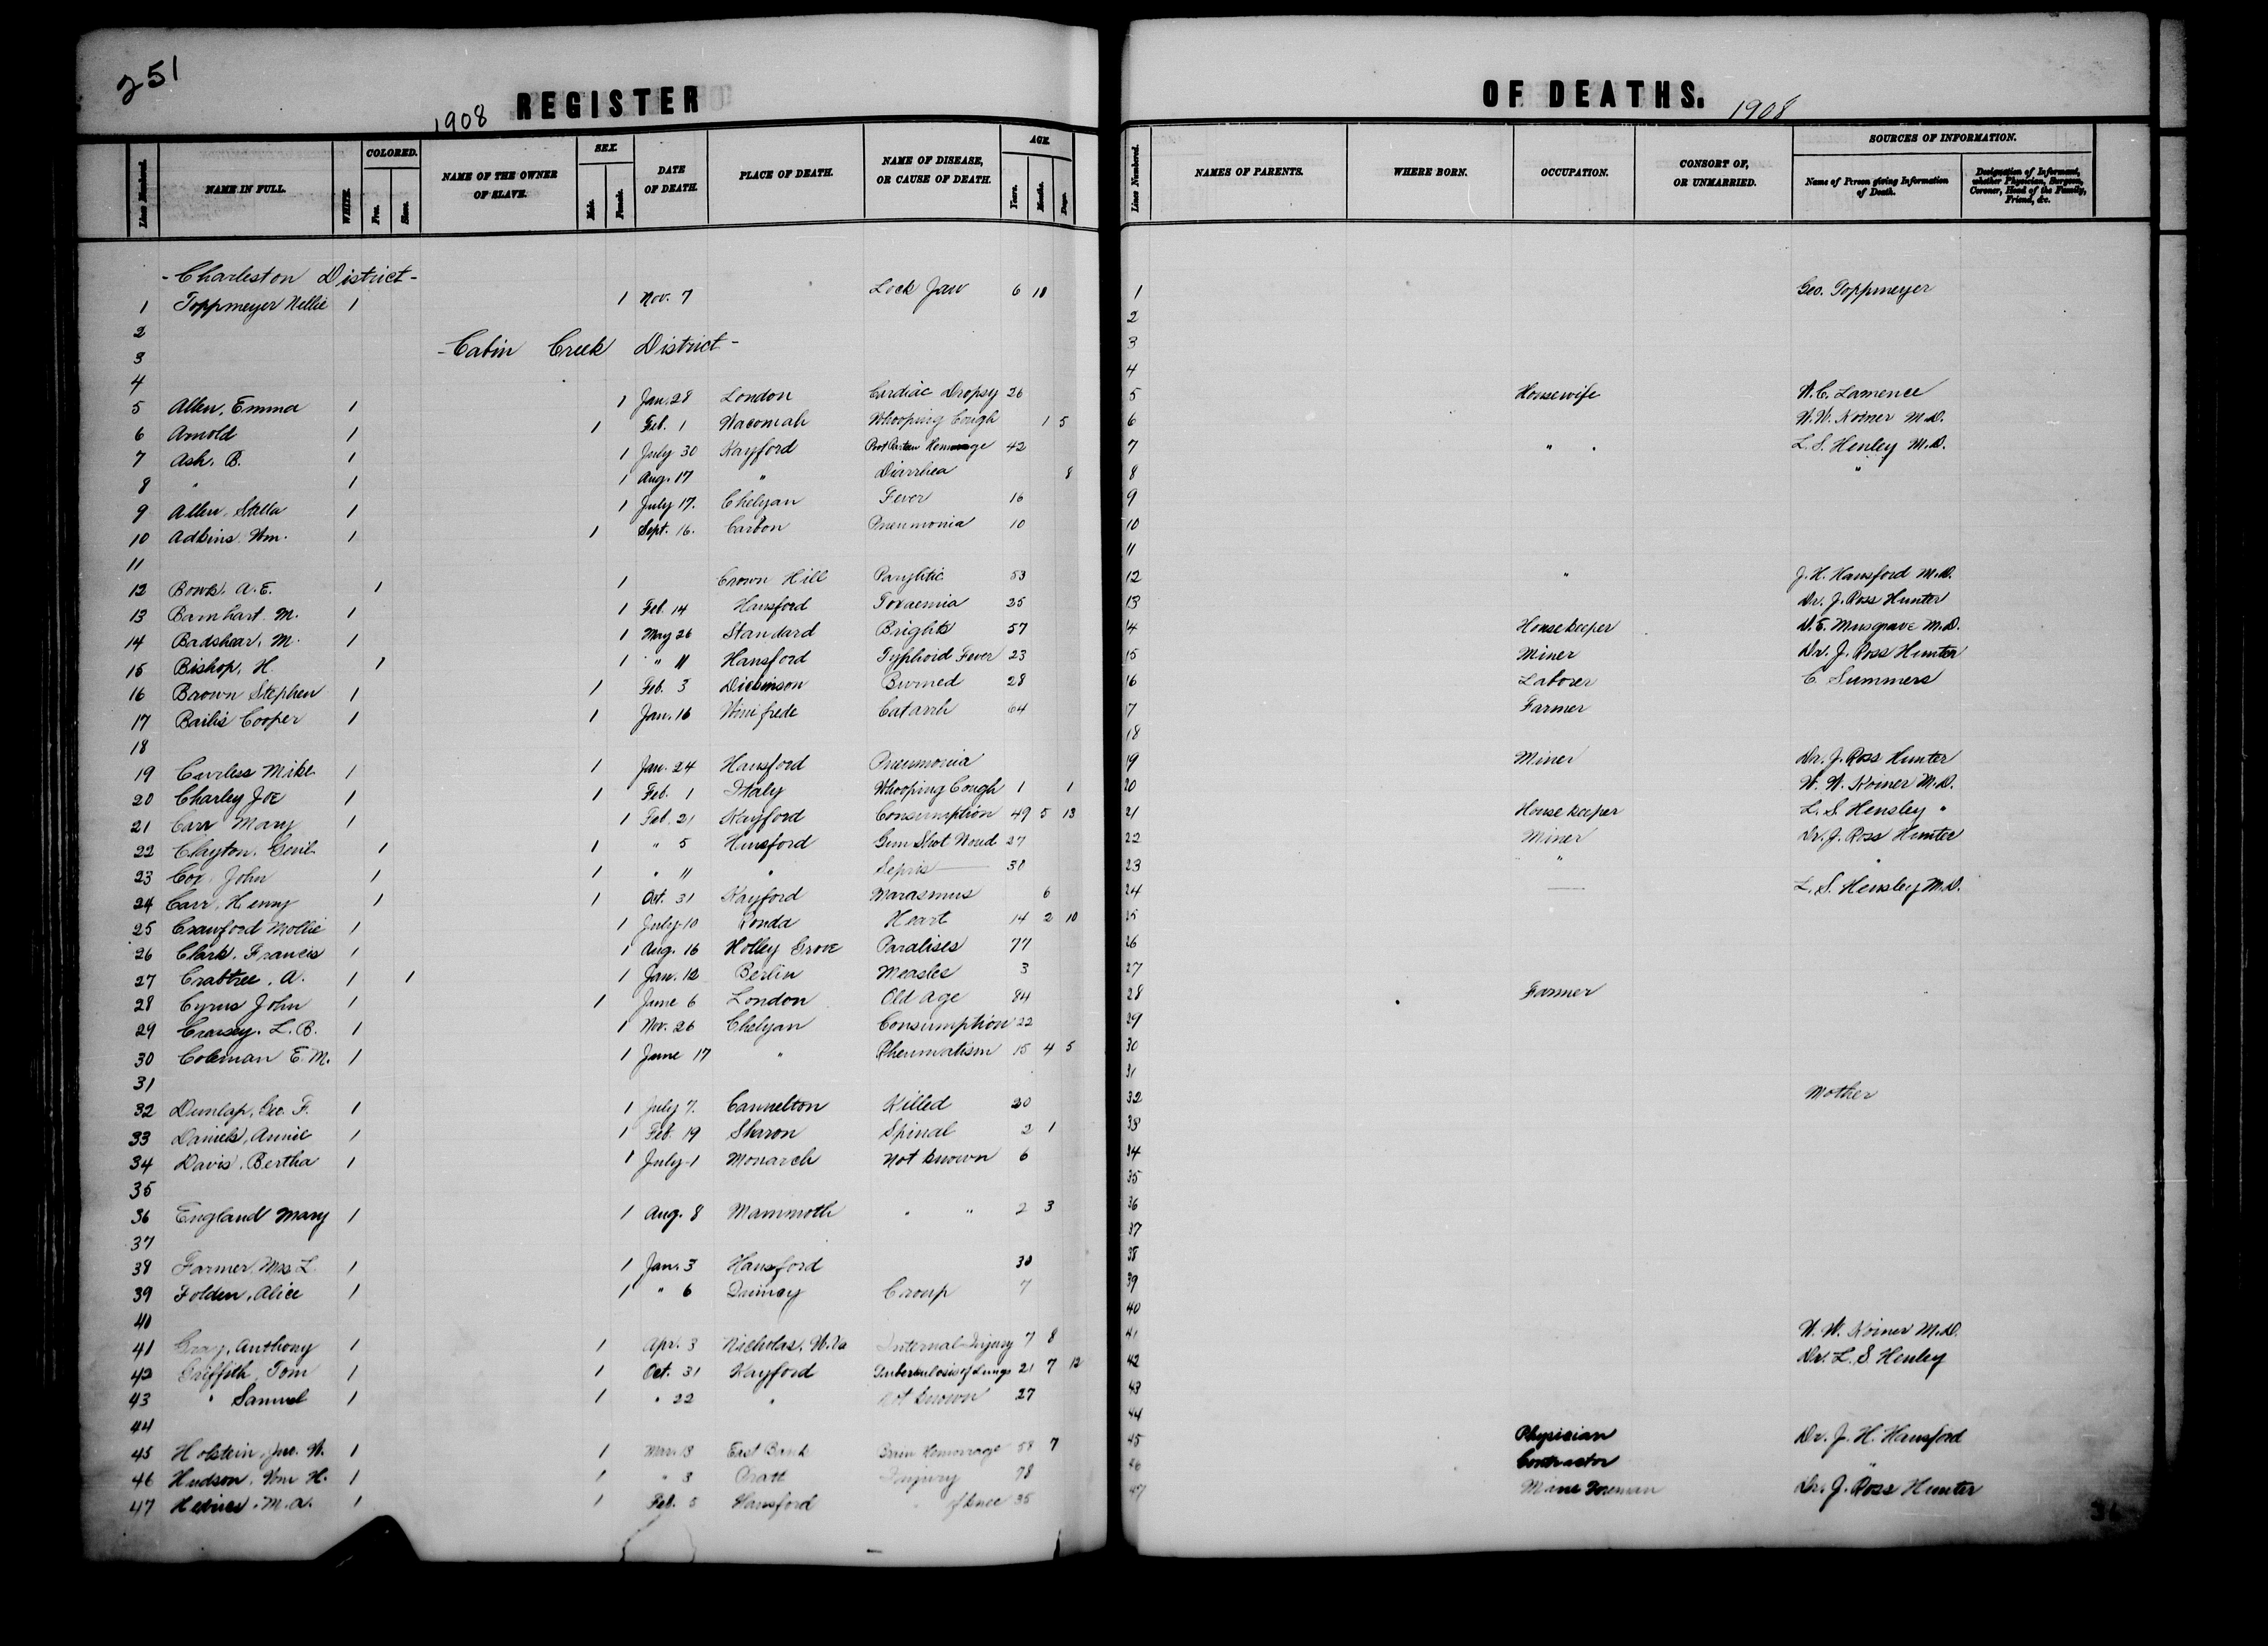 251
1908 REGISTER OF DEATHS. 1908
Line Numbered. NAME IN FULL. WHITE. COLORED. Free. Slave. NAME OF THE OWNER OF SLAVE. SEX. Male. Female. DATE OF DEATH. PLACE OF DEATH. NAME OF DISEASE, OR CAUSE OF DEATH. AGE. Years. Months. Days. Line Numbered. NAMES OF PARENTS. WHERE BORN. OCCUPATION. CONSORT OF, OR UNMARRIED. SOURCES OF INFORMATION. Name of Person giving Information of Death. Designation of Informant, whether Physician, Surgeon, Coroner, Head of the Family, Friend, &c.
- Charleston District -
1 Toppmeyer Nellie 1 1 Nov. 7 Lock Jaw 6 10 1 Geo. Toppmeyer
2 2
3 - Cabin Creek District - 3
4 4
5 Allen, Emma 1 1 Jan. 28 London Cardiac Dropsy 26 5 Housewife W.C. Lawrence
6 Arnold 1 1 Feb. 1 Wacomah Whooping Cough 1 5 6 W.W. Koiner M.D.
7 Ash, B. 1 1 July 30 Kayford Hemorrage 42 7 " L.S. Henley M.D.
8 " 1 1 Aug. 17 " Diarrhea 8 8 "
9 Allen, Stella 1 1 July 17. Chelyan Fever 16 9
10 Adkins, Wm. 1 1 Sept. 16. Carbon Pneumonia 10 10
11 11
12 A.E. 1 1 Crown Hill 53 12 " J.H. Hansford M.D.
13 Barnhart M. 1 1 Feb. 14 Hansford Toxaemia 25 13 Dr. J. Ross Hunter
14 Badshear, M. 1 1 May 26 Standard Brights 57 14 Housekeeper D.E. Musgrave M.D.
15 Bishop, H. 1 1 " 11 Hansford Typhoid Fever 23 15 Miner Dr. J. Ross Hunter
16 Brown Stephen 1 1 Feb. 3 Dickinson Burned 28 16 Laborer C. Summers
17 Bailis Cooper 1 1 Jan. 16 Winifrede Catarrh 64 17 Farmer
18 18
19 Careless Mike 1 1 Jan. 24 Hansford Pneumonia 19 Miner Dr. J. Ross Hunter
20 Charley Joe 1 1 Feb. 1 Italy Whooping Cough 1 1 20 W. W. Koiner M.D.
21 Carr Mary 1 1 Feb. 21 Kayford Consumption 49 5 13 21 Housekeeper L.S. Hensley "
22 Clayton, 1 1 " 5 Hansford Gun Shot Woud 27 22 Miner Dr. J. Ross Hunter
23 Cox John 1 1 " 11 " Sepsis 30 23 " "
24 Carr, Henry 1 1 Oct. 31 Kayford Marasmus 6 24 L. S. Hensley M.D.
25 Crawford Mollie 1 1 July 10 Ronda Heart 14 2 10 25
26 Clark, Francis 1 1 Aug. 16 Holley Grove Paralises 77 26
27 Crabtree, A. 1 1 1 Jan. 12 Berlin Measles 3 27
28 Cyrus John 1 1 June 6 London Old Age 84 28 Farmer
29 L.B. 1 1 Nov. 26 Chelyan Consumption 22 29
30 Coleman E.M. 1 1 June 17 " Rheumatism 15 4 5 30
31 31
32 Dunlap, Geo. F. 1 1 July 7. Cannelton Killed 20 32 Mother
33 Daniels, Annie 1 1 Feb. 19 Sharon Spinal 2 1 33
34 Davis, Bertha 1 1 July 1 Monarch Not known 6 34
35 35
36 England Mary 1 1 Aug. 8 Mammoth " " 2 3 36
37 37
38 Farmer, Mrs L. 1 1 Jan. 3 Hansford 30 38
39 Folden, Alice 1 1 " 6 Quincy Croup 7 39
40 40
41 Gray, Anthony 1 1 Apr. 3 Nicholas, W.Va Internal Injury 7 8 41 W. W. Koiner M.D.
42 Griffith, Tom 1 1 Oct. 31 Kayford Tuberkulosis of Lungs 21 7 12 42 Dr. L. S Henley
43 " Samuel 1 1 " 22 " Not known 27 43
44 44
45 Holstein, Jno. W. 1 1 Mar. 18 East Bank Brain Hemorrage 58 7 45 Physician Dr. J. H. Hansford
46 Hudson, Wm H. 1 1 " 3 Pratt Injury 78 46 Contractor "
47 M.A. 1 1 Feb. 5 Hansford " of knee 35 47 Mine Foreman Dr. J. Ross Hunter